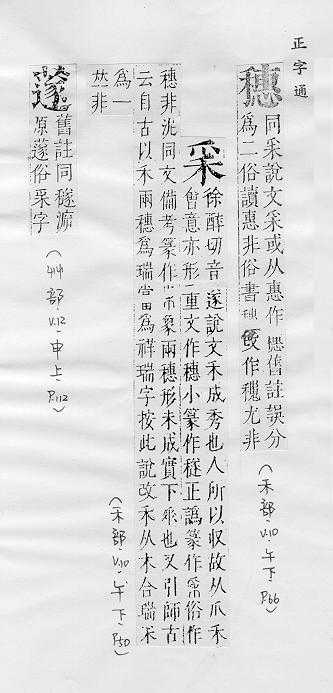 正字通
穗
同采說文采或从惠作㯼舊註誤分
為二俗讀惠非俗書穂
作穖尤非
(禾部,V.10,午下,P.66)
采
徐醉切音遂說文禾成秀也人所以収故从爪禾
會意亦形重文作穗小篆作穟正譌篆作俗作
穗非沈同文備考篆作象兩穗形未成實下也又引師古
云自古以禾兩穗為瑞當為祥瑞字按此說改禾从木合瑞采
為一
𠀤非
(禾部,V.10,午下,P.50)
舊註同穟㴑
原䔹俗采字
(艸部,V.12,申上,P.112)